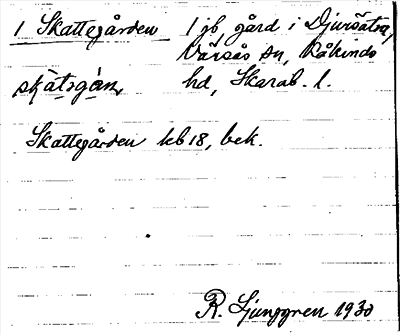 1 Skattegården 1 jb, gård i Djursätra,
Värsås sn, Kåkinds
skàtsgán, hd, Skarab. l.
Skattegården kb 18, bek.
R. Ljunggren 1930